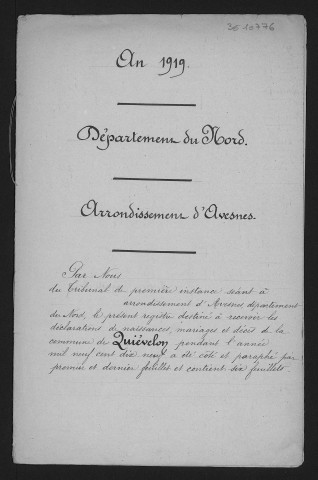 3E 10776
An 1919.
Département du Nord.
Arrondissement d'Avesnes.
Par Nous
du Tribunal de première instance séant à
arrondissement d'Avesnes département
du Nord, le présent registre destiné à recevoir les
déclarations de naissances, mariages et décès de la
commune de Quiévelon pendant l'année
mil neuf cent dix neuf a été coté et paraphé par
premier et dernier feuillet et contient six feuillets.